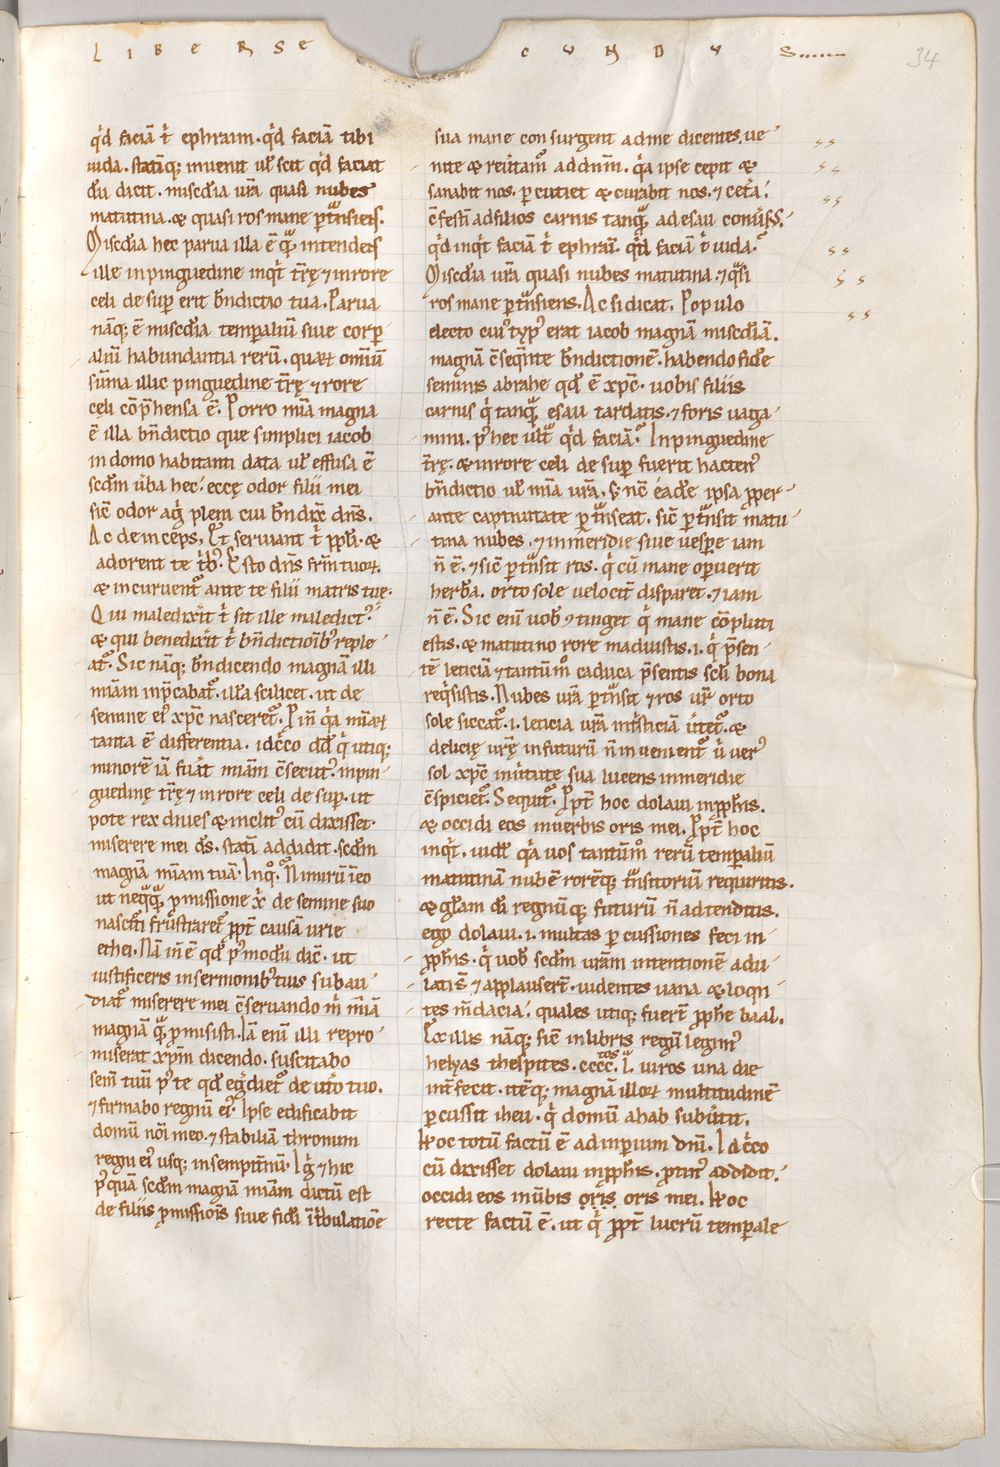 LIBER SECUNDUS
34
qd faciā t̄ ephraim. qd faciā tibi
iuda. statiq; inuenit ul scit qd faciat
dū dicit. miscdia ura quasi nubes
matutina. & quasi ros mane ptnsiens.
Miscdia hec parua illa ē quā intendens
ille inpinguedine inqt trę ⁊ inrore
celi de sup erit bndictio tua. Parua
nāq; ē miscdia temporaliū siue corp
aliū habundantia rerū. quaꝝ omniū
sūma illic pinguedine trę ⁊ rore
celi cōphensa ē. Porro mia magna
ē illa bndictio que simplici iacob
in domo habitanti data ul effusa ē
scdm uba hec. ecce odor filii mei
sic odor agi pleni cui bndix dns.
Ac deinceps. Et seruiant t̄ ppli. &
adorent te tb. Esto dns frm tuoꝝ.
& incuruent ante te filii matris tue.
Qui maledixit t̄ sit ille maledict.
& qui benedixit t̄ bndictiob reple
at. Sic nāq; bndicendo magnā illi
miam inpcabat. illa scilicet. ut de
semine ei xpc nasceret. P in qa miaꝝ
tanta ē differentia. idcco dd q utiq;
minorē iā fuat miam ēsecut. inpin
guedinę trę ⁊ inrore celi de sup. ut
pote rex diues & inclit cū dixisset.
miserere mei ds. statī addidit. scdm
magnā miam tuā. Inq. Nimirū ideo
ut neqq pmissione x de semine suo
nascituri frustraret ppt causā urie
ethei. Nā in ē qd p modū dic. ut
iustificeris insermonib tuis subau
diat miserere mei ēseruando m miā
magnā quā pmisisti. Iā enī illi repro
miserat xpm dicendo. suscitabo
sem tuū p te qd egdiet de utero tuo.
⁊ firmabo regnū ei. Ipse edificabit
domū noi meo. ⁊ stabiliā thronum
regni ei usq; insempitnū. Ig ⁊ hic
p quā scdm magnā miam dictū est
de filiis pmissiois siue fidi itbulatioe
sua mane consurgent adme dicentes. ue
nite & reutam addnm. qa ipse cepit &
sanabit nos. percutiet & curabit nos. ⁊ cetā.
ē festi adfilios carnis tanq adesau conuss.
qd inqt faciā t̄ ephrai. qd faciā t̄ iuda.
Miscdia ura quasi nubes matutina. ⁊ qsi
ros mane ptnsiens. Ac si dicat. Populo
electo cui typ erat iacob magnā miscdiā.
magnā ēseqnte bndictionē. habendo fide
seminis abrahe qd ē xpc. uobis filiis
carnis q tanq esau tardatis. ⁊ foris uaga
mini. p hec ult qd faciā. Inpinguedine
trę. & inrore celi de sup fuerit hacten
bndictio ul mia ura. s nc eade ipsa pper
ante captiuitate ptnseat. sic ptnsit matu
tina nubes. ⁊ inmeridie siue uespe iam
n ē. ⁊ sic ptnsit ros. q cū mane operuerit
herbā. orto sole uelocit disparet. ⁊ iam
n ē. Sic eni uob ꝯtinget q mane cōpluti
estis. & matutino rore maduistis. i. q psen
tē leticiā ⁊ tantūm caduca psentis scli bona
reqsistis. Nubes ura ptnsit ⁊ ros ur orto
sole siccat. i. leticia ura intsticiā utet. &
delicię urę in futurū n inuenient u uer
sol xpc inuirtute sua lucens inmeridie
ēspiciet. Sequit. Ppt hoc dolaui inpphis.
& occidi eos inuerbis oris mei. Ppt hoc
inqt. uidl qa uos tantūm rerū temporaliū
matutinā nubē rorēq; tnsitoriū requiritis.
& glam di regnūq; futurū n adtenditis.
ego dolaui. i. multas percussiones feci in
pphis. q uob scdm uram intentionē adu
latis ⁊ applauserunt. uidentes uana & loqn
tes mdacia. quales utiq; fuert pphe baal.
Ex illis nāq; sic in libris regū legim
helyas thesbites. cccc.tos l. uiros una die
intfecit. itēq; magnā illoꝝ multitudinē
percussit iheu. q domū ahab subuertit.
Hoc totū factū ē ad inperium dni. Idcco
cū dixisset dolaui inpphis. ptin addidit.
occidi eos inubis oris oris mei. Hoc
recte factū ē. ut q ppt lucrū temporale